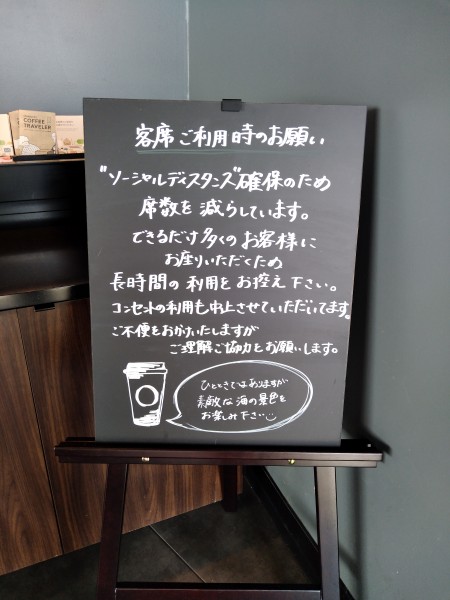 COFFEE
TRAVELER
客席ご利用時のお願い
"ソーシャルディスタンス"確保のため
席数を減らしています。
できるだけ多くのお客様に
お座りいただくため
長時間の利用をお控え下さい。
コンセントの利用も中止させていただいてます。
ご不便をおかけいたしますが
ご理解ご協力をお願いします。
ひとときではありますが
素敵な海の景色を
お楽しみ下さい